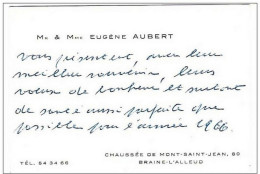 Mr & Mme EUGÈNE AUBERT
vous présentent, avec leur
meilleur souvenir, leurs
vœux de bonheur et surtout
de santé aussi parfaite que
possible pour l'année 1966.
CHAUSSÉE DE MONT-SAINT-JEAN, 80
TÉL. 54 34 68 BRAINE-L'ALLEUD